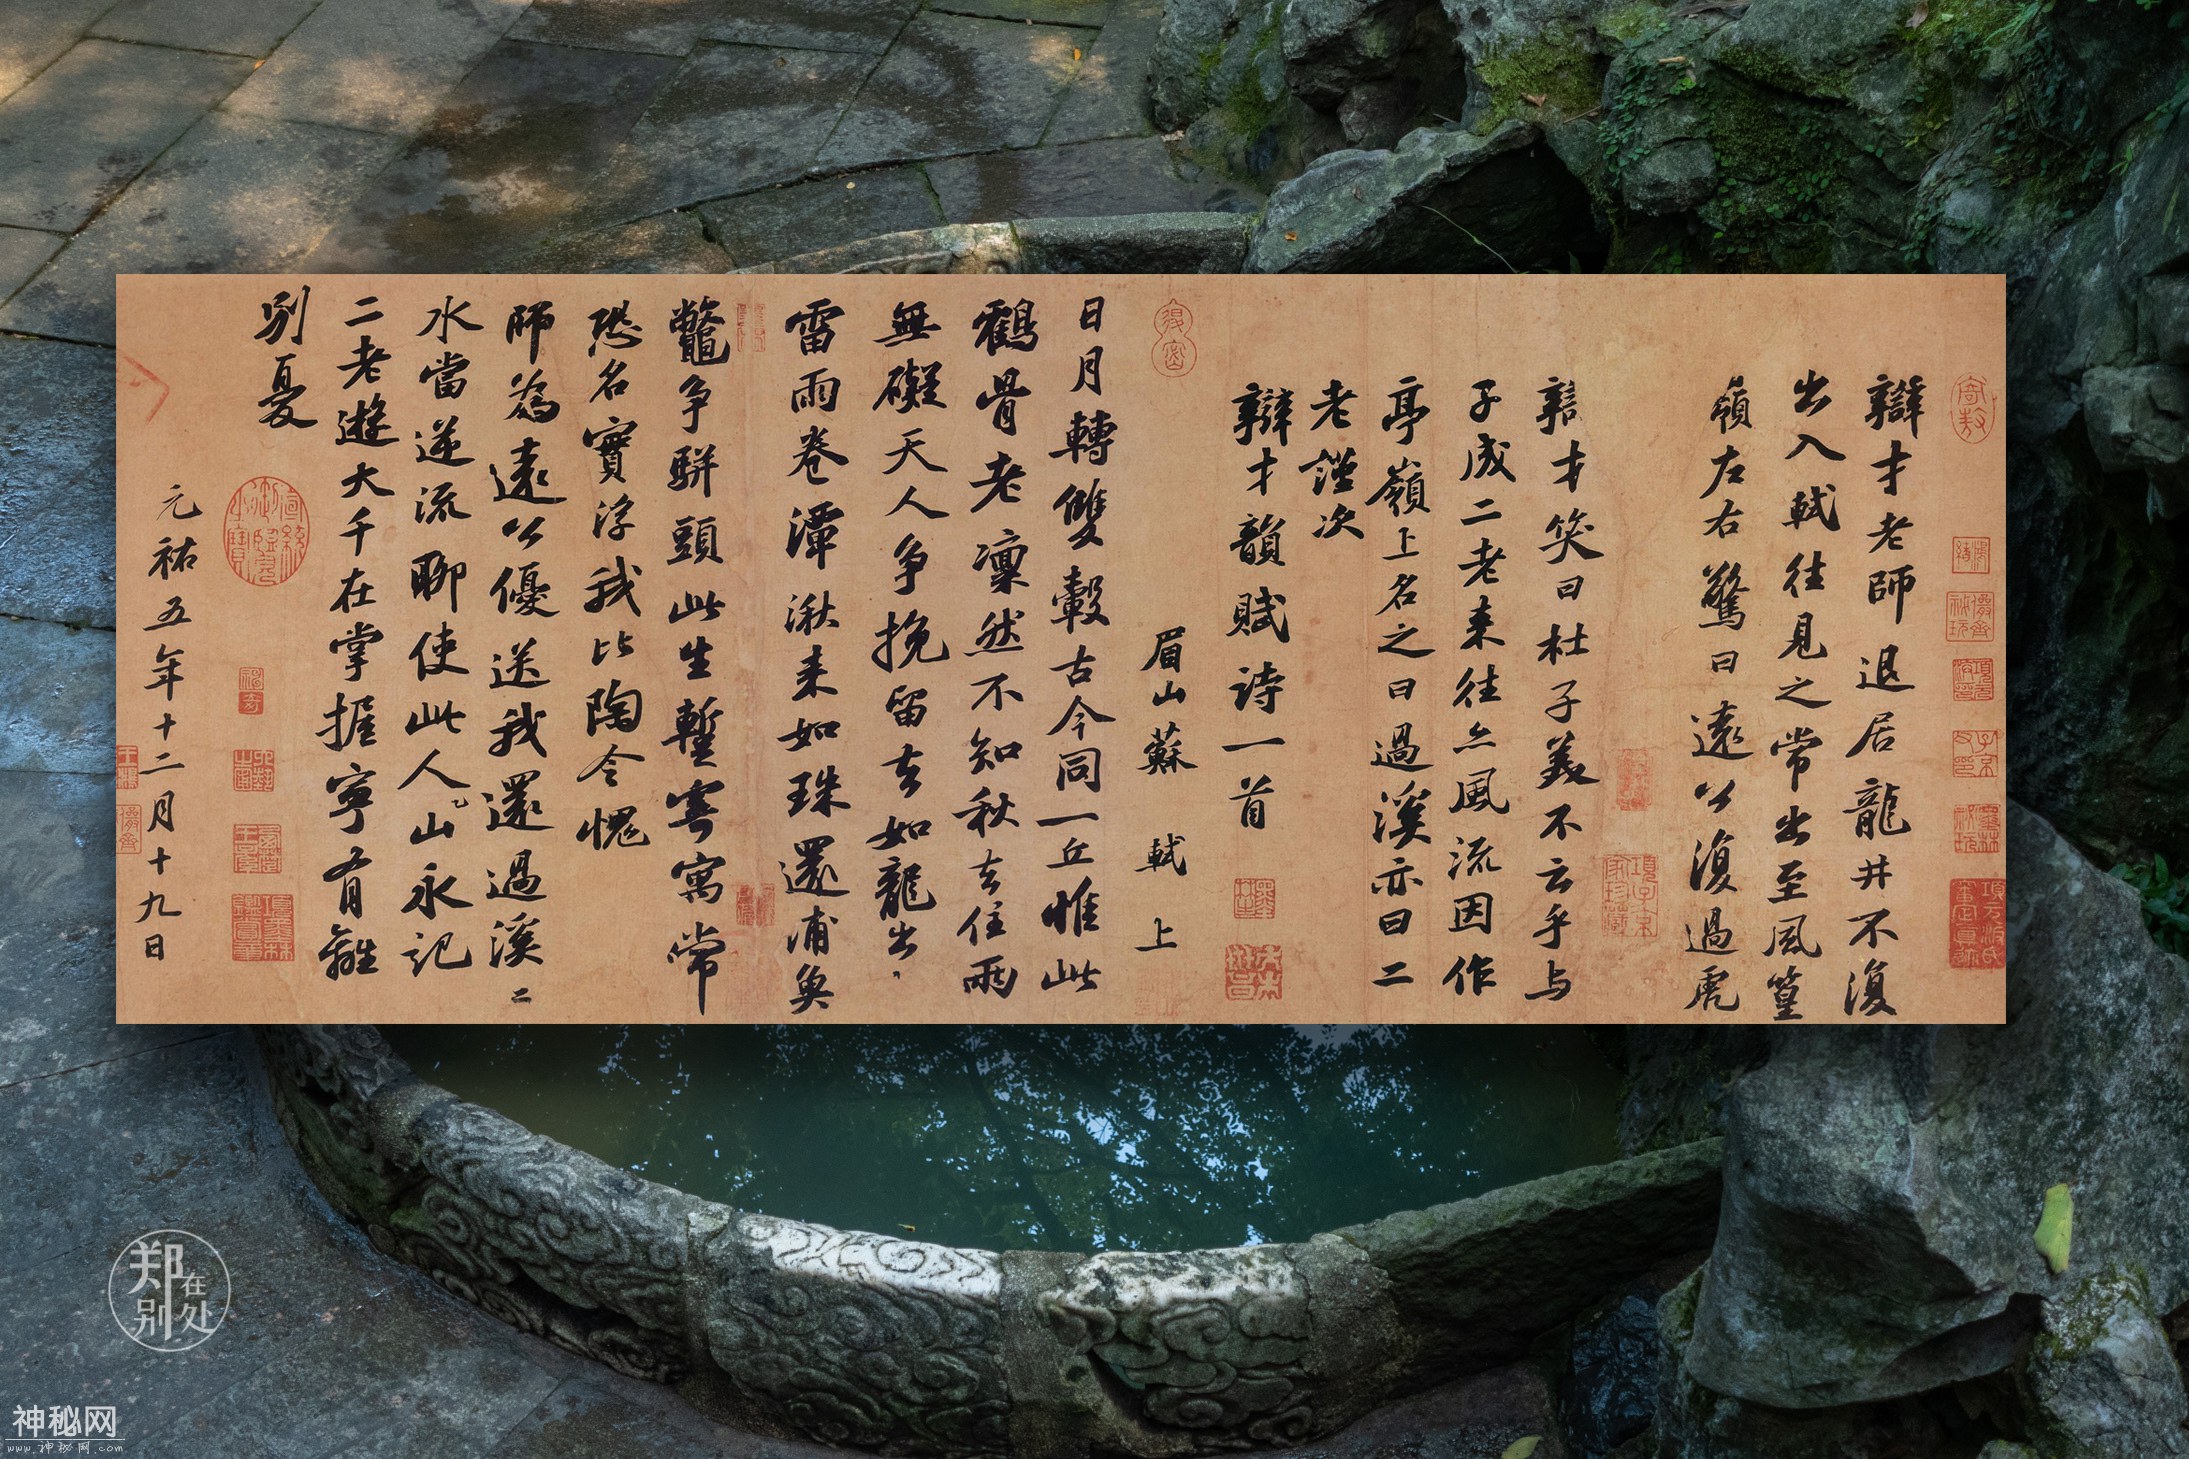 辯才老師退居龍井不復
出入軾往見之常出至風篁
嶺左右驚曰遠公復過虎
辯才笑曰杜子美不云乎与
子成二老来往亦風流因作
亭嶺上名之曰過溪亦曰二
老謹次
辯才韻賦詩一首
眉山蘇 軾 上
日月轉雙轂古今同一丘惟此
鶴骨老凛然不知秋去住兩
無礙天人争挽留去如龍出
雷雨卷潭湫来如珠還浦魚
鼈争駢頭此生蹔寄寓常
恐名實浮我比陶令愧
師為遠公優送我還過溪〻
水當逆流聊使此人山永記
二老遊大千在掌握寧有離
别憂
元祐五年十二月十九日
郑在别处
神秘网
www.神秘网.com